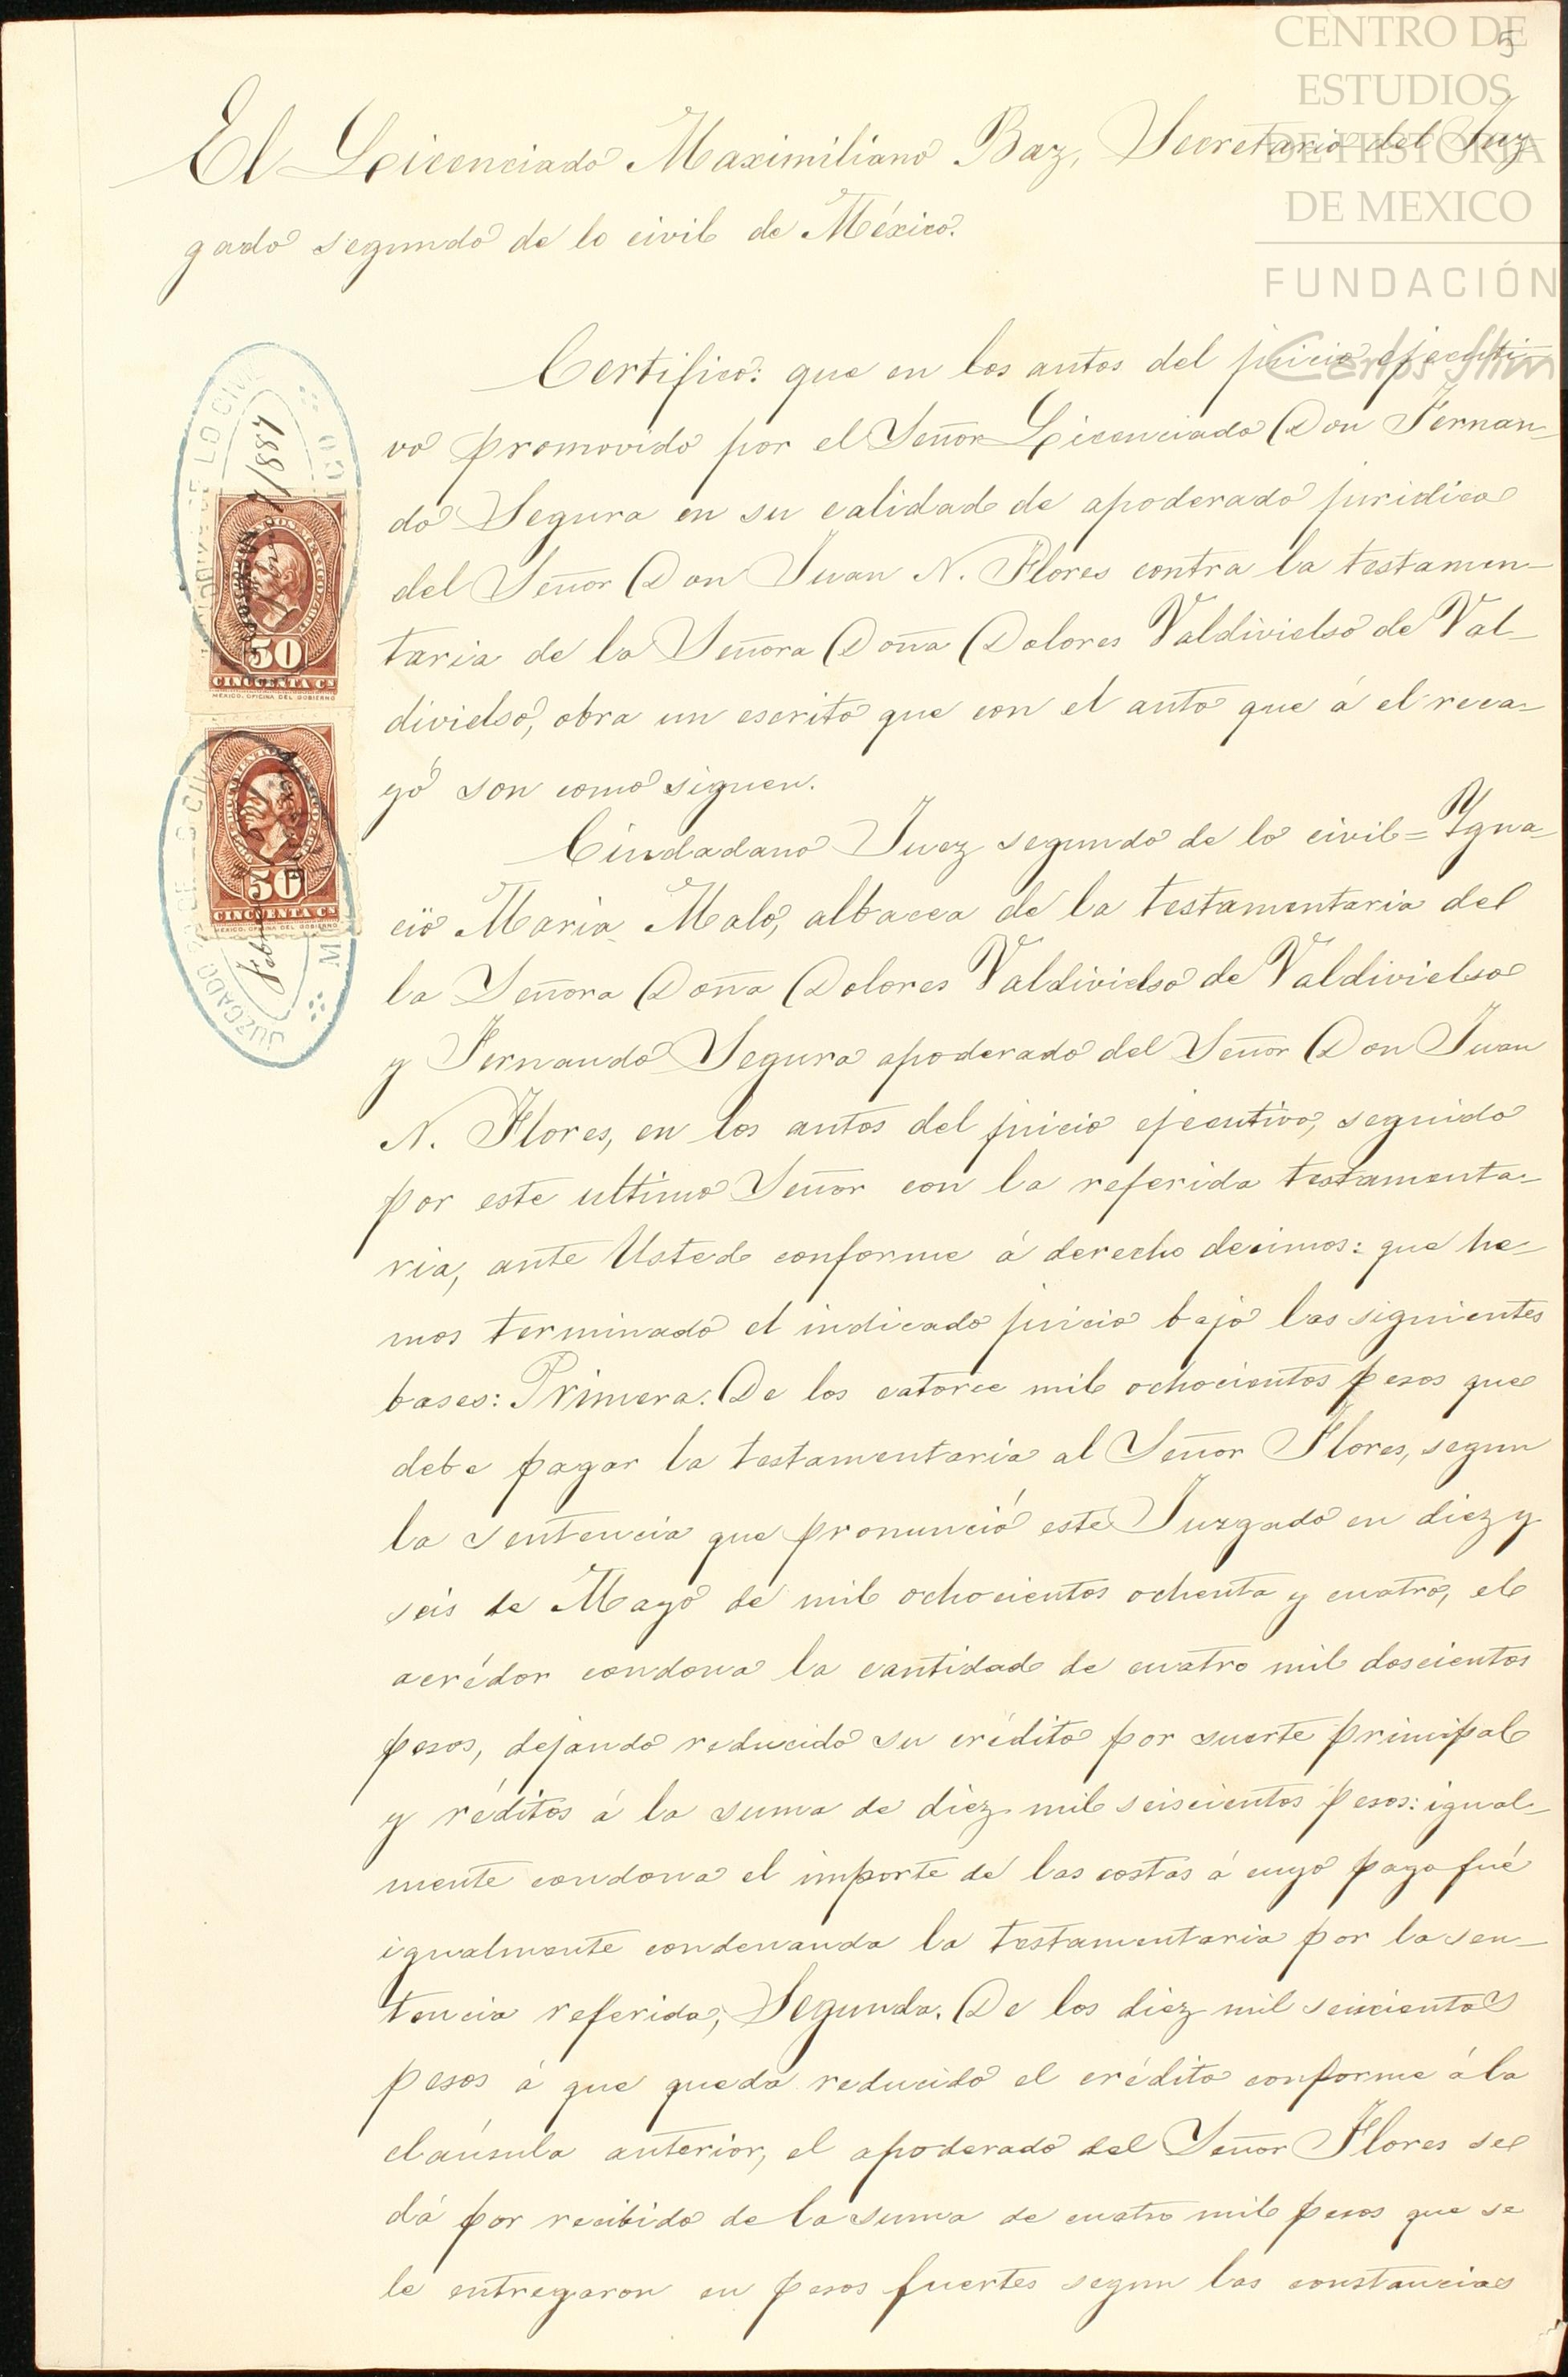 CENTRO DE
ESTUDIOS
DE HISTORIA
DE MEXICO
FUNDACIÓN
Carlos Slim
5
El Licenciado Maximiliano Baz, Secretario del Juz
gado segundo de lo civil de México.
Certifico: que en los autos del juicio ejecuti-
vo promovido por el Señor Licenciado Don Fernan-
do Segura en su calidad de apoderado juridico
del Señor Don Juan N. Flores contra la testamen-
taria de la Señora Doña Dolores Valdivielso de Val-
divielso, obra un escrito que con el auto que á el reca-
yó son como siguen.
Ciudadano Juez segundo de lo civil= Ygna-
cio Maria Malo, albacea de la testamentaria del
la Señora Doña Dolores Valdivielso de Valdivielso
y Fernando Segura apoderado del Señor Don Juan
N. Flores, en los autos del juicio ejecutivo, seguido
por este ultimo Señor con la referida testamenta-
ria, ante Usted conforme á derecho decimos: que he-
mos terminado el indicado juicio bajo las siguientes
bases: Primera. De los catorce mil ochocientos pesos que
debe pagar la testamentaría al Señor Flores, segun
la sentencia que pronunció este Juzgado en diez y
seis de Mayo de mil ochocientos ochenta y cuatro, el
acrédor condona la cantidad de cuatro mil doscientos
pesos, dejando reducido su crédito por suerte principal
y réditos á la suma de diez mil seiscientos pesos: igual-
mente condona el importe de las costas á cuyo pago fué
igualmente condenanda la testamentaria por la sen-
tencia referida; Segunda. De los diez mil seiscientos
pesos á que queda reducido el crédito conforme á la
claúsula anterior, el apoderado del Señor Flores se
dá por recibido de la suma de cuatro mil pesos que se
le entregaron en pesos fuertes segun las constancias
JUZGADO 2º DE LO CIVIL
MEXICO
1887
50
CINCUENTA CS
MEXICO. OFICINA DEL GOBIERNO
50
CINCUENTA CS
MEXICO. OFICINA DEL GOBIERNO
Febrero